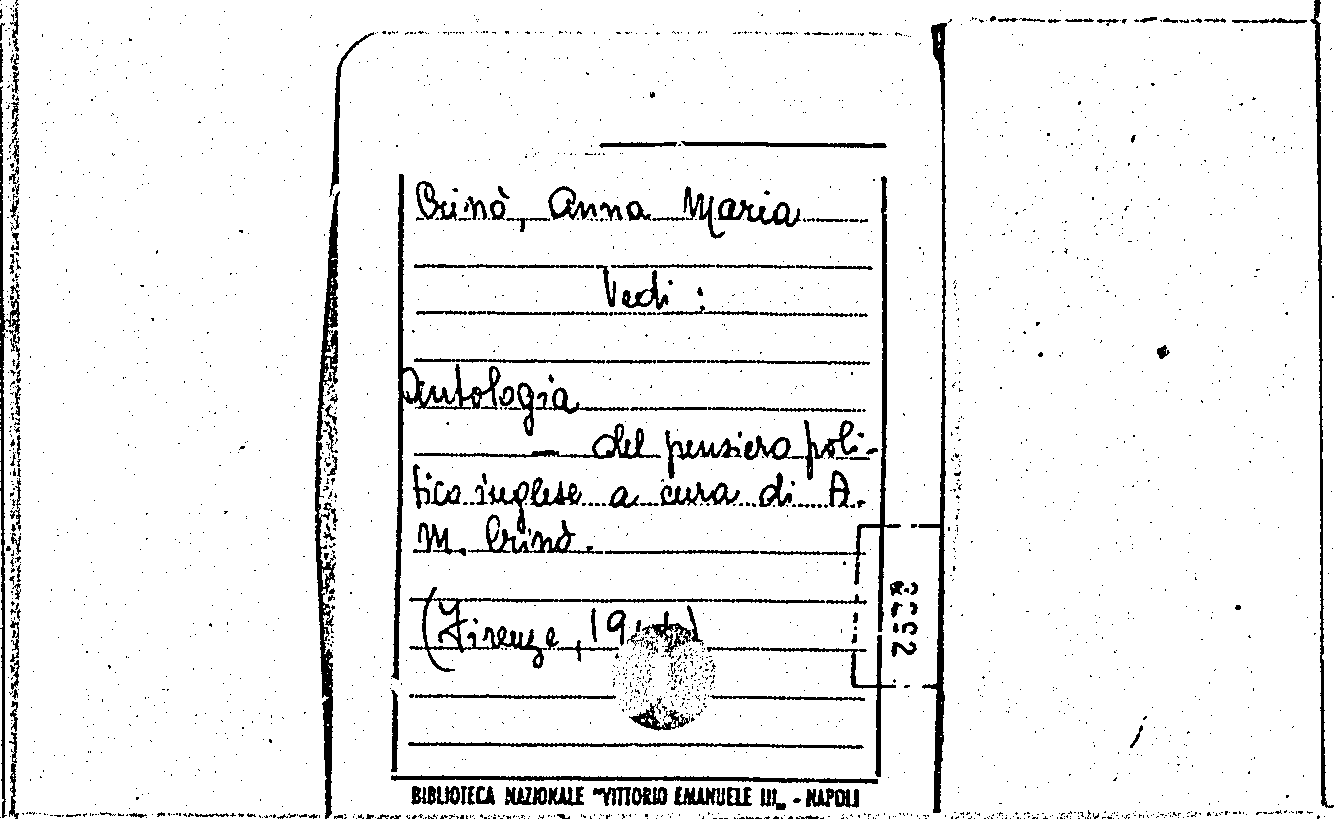 Crinò, Anna Maria
Vedi :
Antologia
— del pensiero poli-
tico inglese a cura di A.
M. Crinò.
(Firenze, 19
BIBLIOTECA NAZIONALE "VITTORIO EMANUELE III„ - NAPOLI